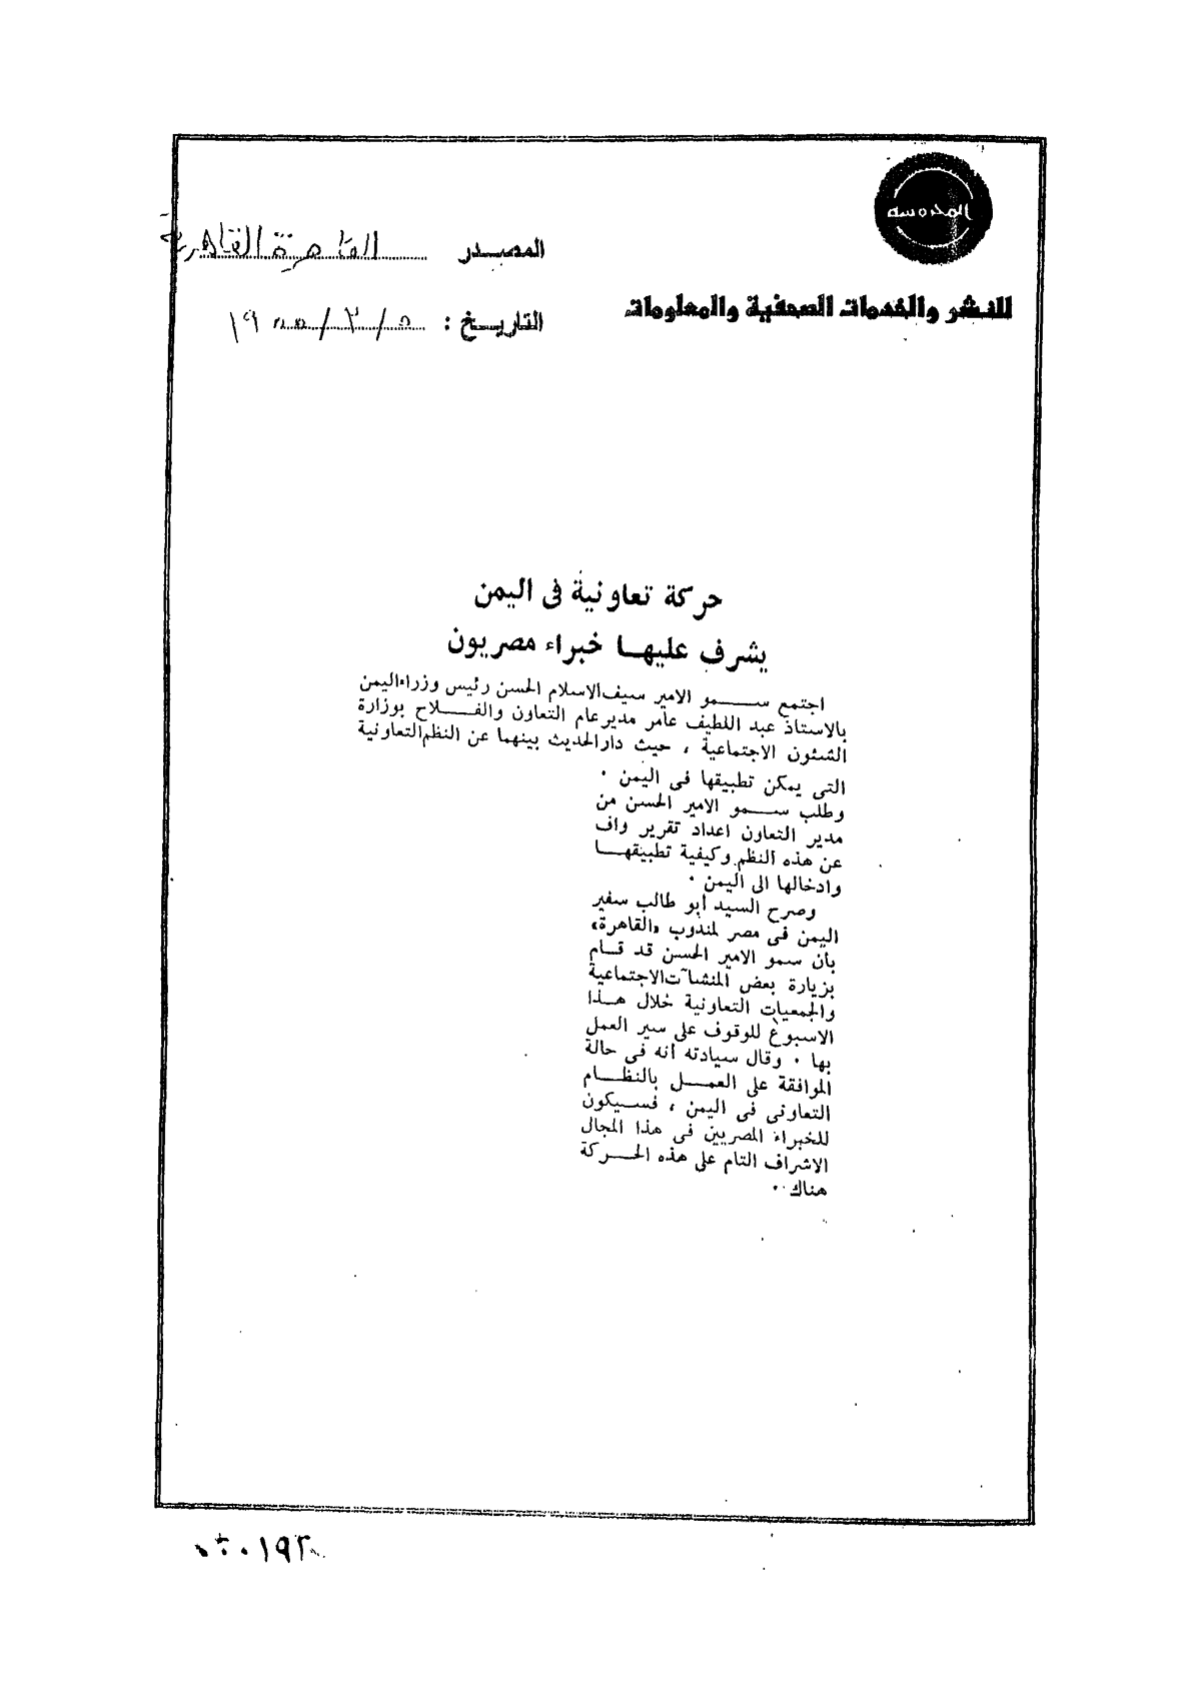 المحروسه
للنشر والخدمات الصحفية والمعلومات
المصدر القاهرة القاهرية
التاريخ : ٥ / ٣ / ١٩٥٥
حركة تعاونية فى اليمن
يشرف عليها خبراء مصريون
اجتمع سمو الامير سيف الاسلام الحسن رئيس وزراء اليمن
بالاستاذ عبد اللطيف عامر مدير عام التعاون والفلاح بوزارة
الشئون الاجتماعية ، حيث دار الحديث بينهما عن النظم التعاونية
التى يمكن تطبيقها فى اليمن .
وطلب سمو الامير الحسن من
مدير التعاون اعداد تقرير واف
عن هذه النظم وكيفية تطبيقها
وادخالها الى اليمن .
وصرح السيد أبو طالب سفير
اليمن فى مصر لمندوب «القاهرة»
بأن سمو الامير الحسن قد قام
بزيارة بعض المنشآت الاجتماعية
والجمعيات التعاونية خلال هذا
الاسبوع للوقوف على سير العمل
بها . وقال سيادته انه فى حالة
الموافقة على العمل بالنظام
التعاونى فى اليمن ، فسيكون
للخبراء المصريين فى هذا المجال
الاشراف التام على هذه الحركة
هناك .